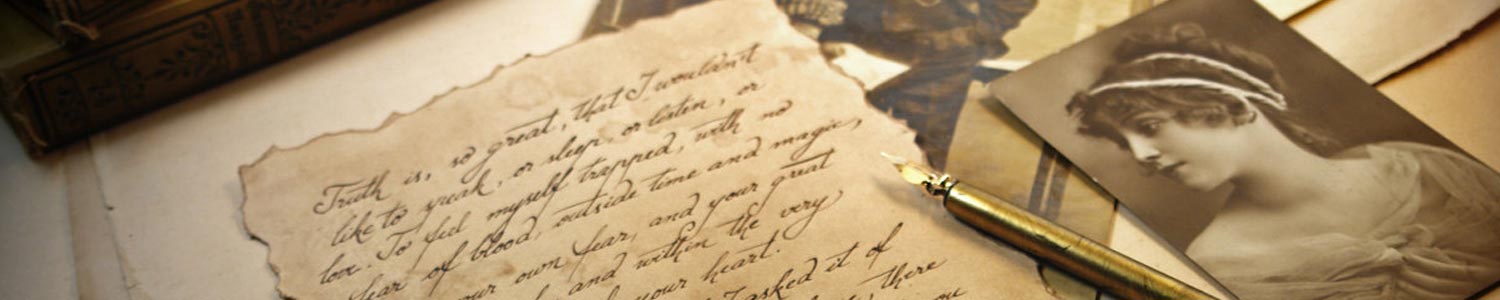 Truth is, so great, that I wouldn't
like to speak, or sleep, or listen, or
love. To feel myself trapped, with no
fear of blood, outside time and magic,
your own fear, and your great
and within the very
your heart.
I asked it of
there
you